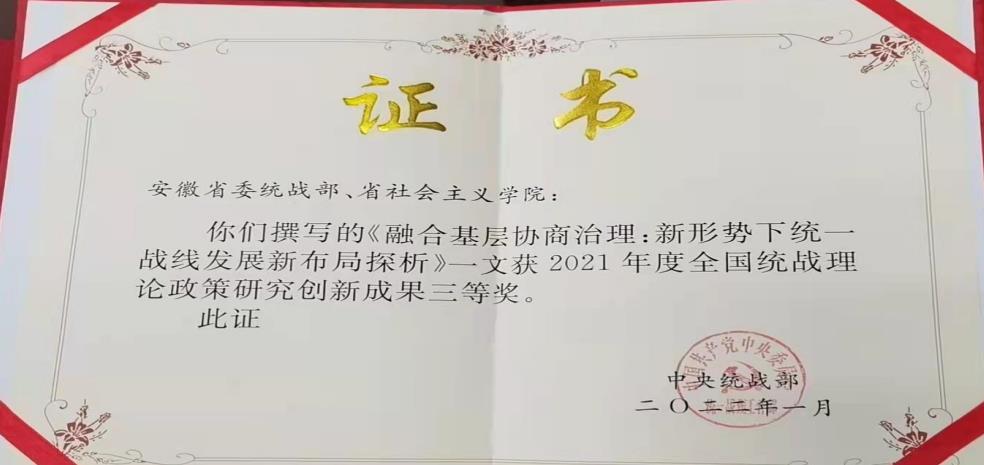 证书
安徽省委统战部、省社会主义学院：
你们撰写的《融合基层协商治理：新形势下统一
战线发展新布局探析》一文获2021年度全国统战理
论政策研究创新成果三等奖。
此证
中国共产党中央委员会
中央统战部
二〇二二年一月